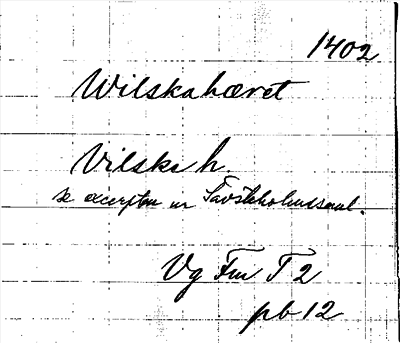 1402
Wilskahæret
Vilske h
se excerpten ur Sävstaholmssaml.
Vg Fm T 2
pb 12